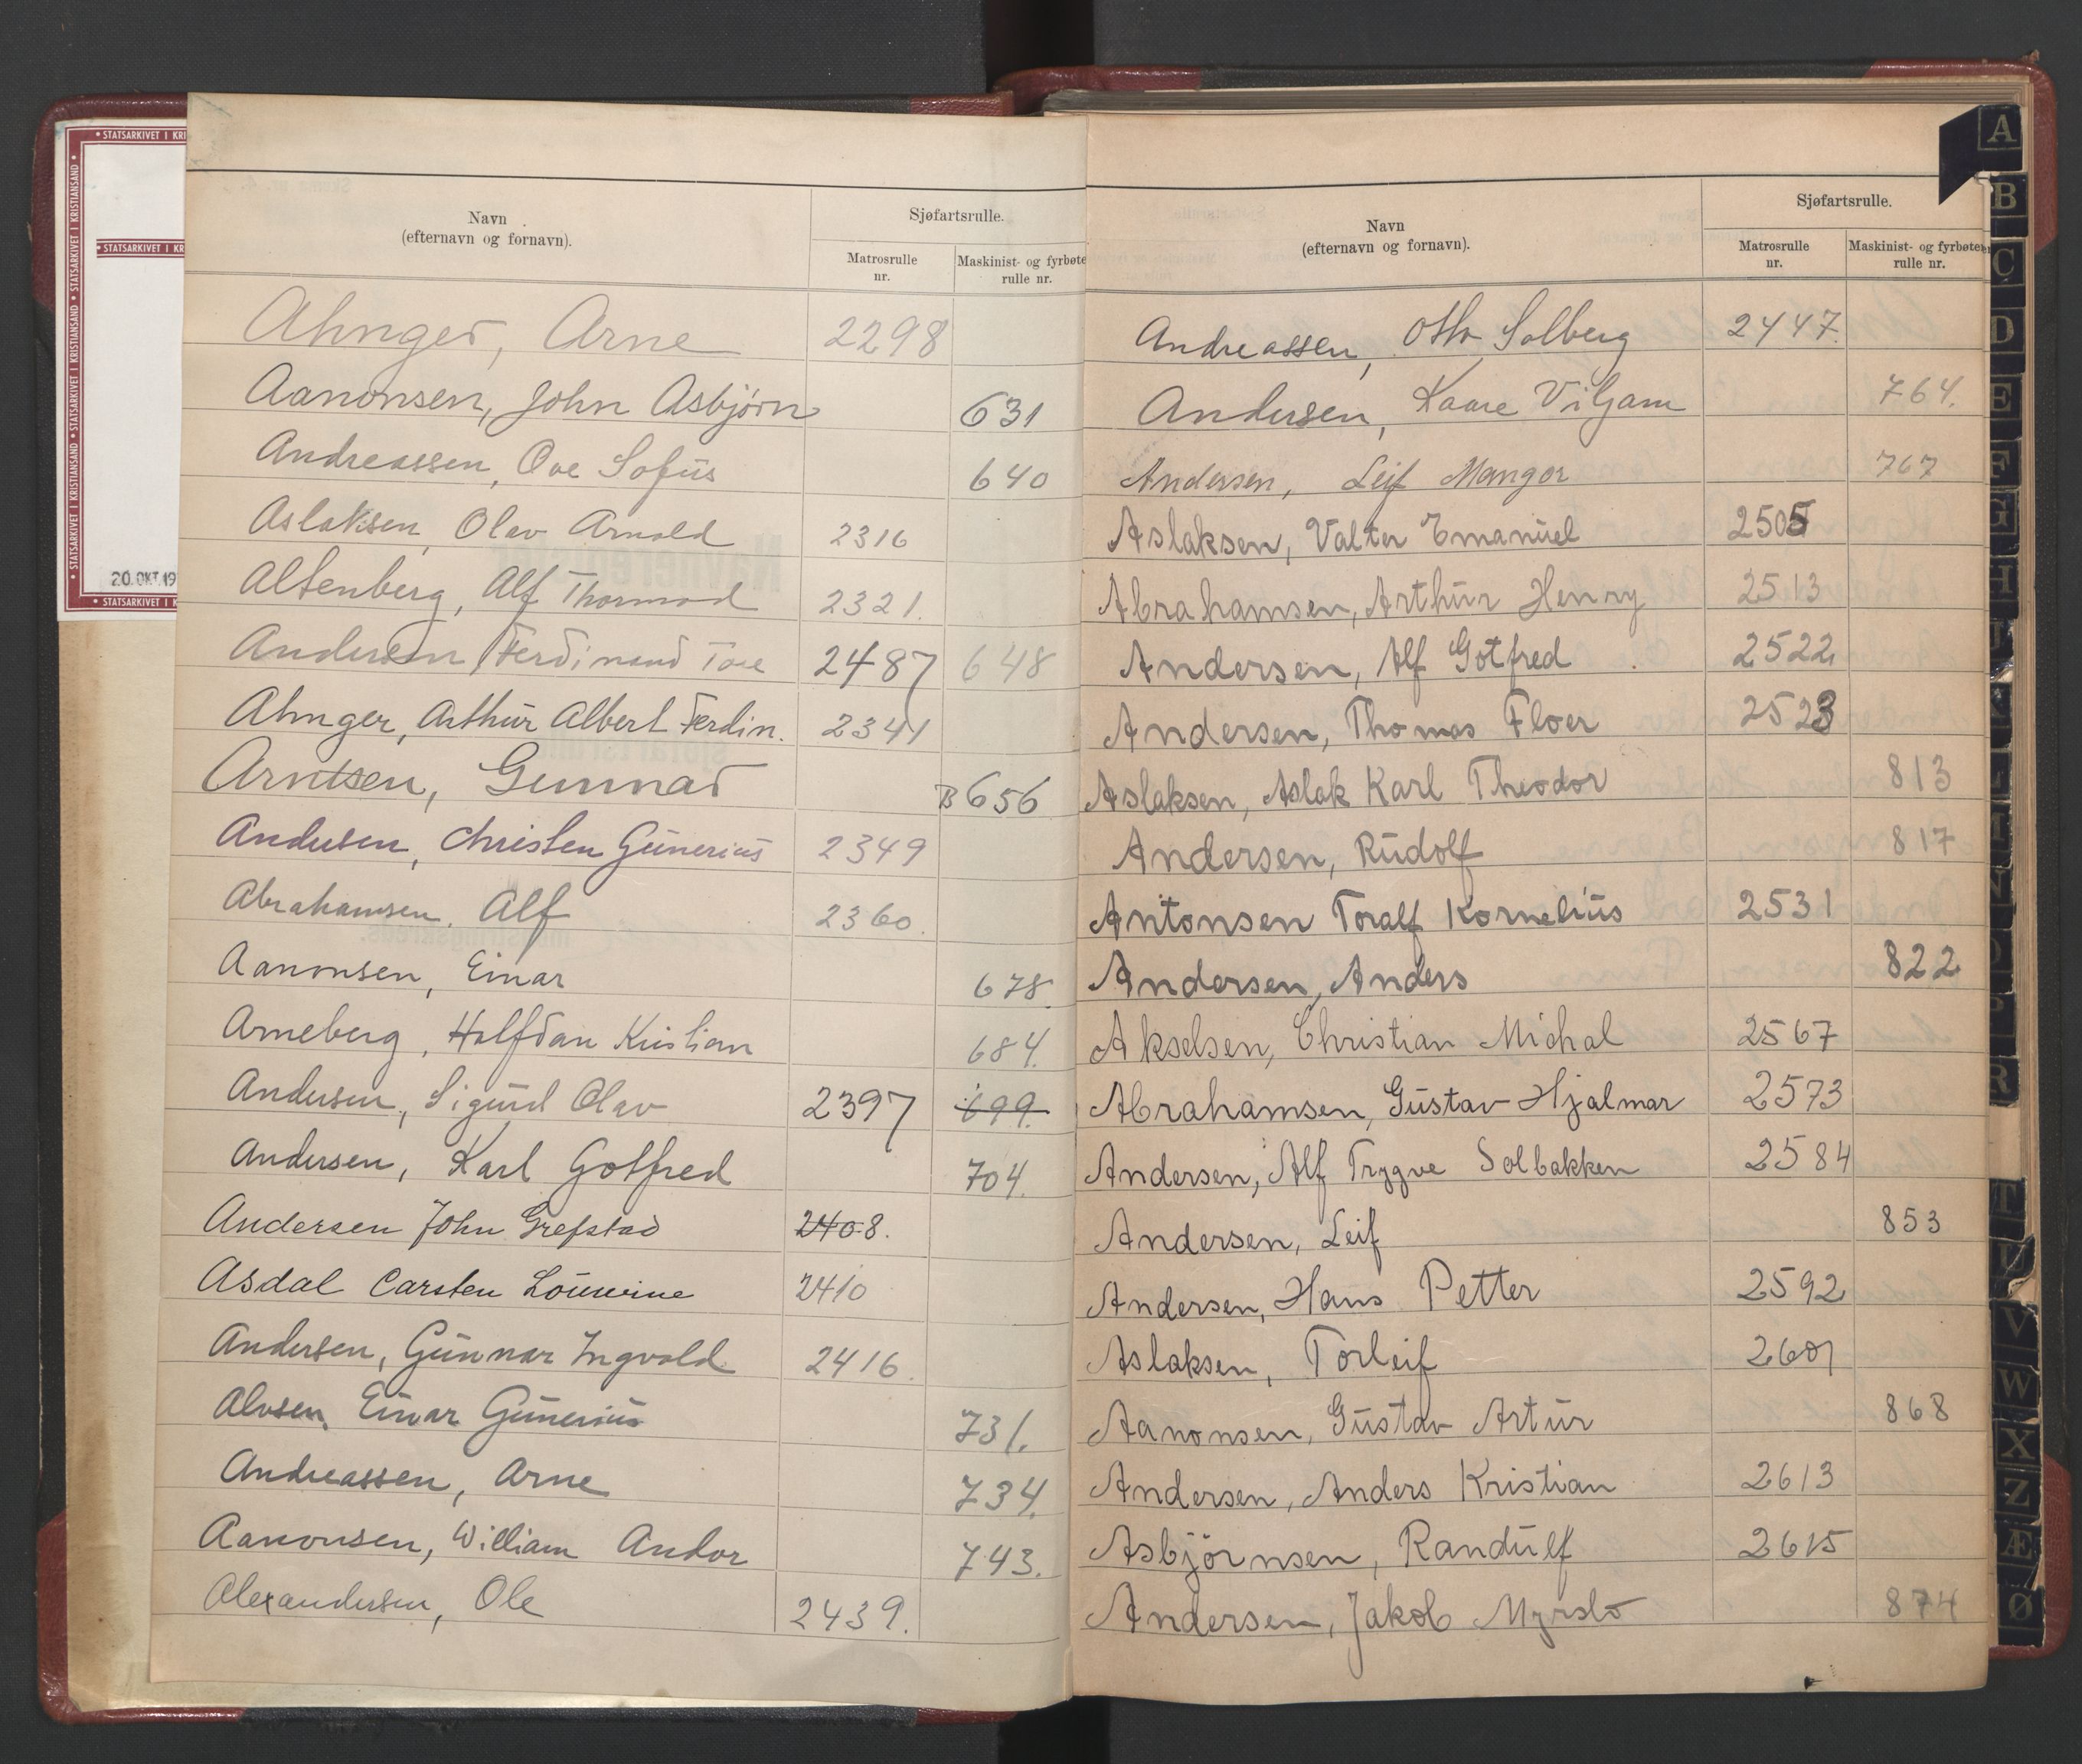 • STATSARKIVET I KRI
• STATSARKIVET I KR
• STATSARKIVET I KRISTIANSAND • STATSARKIVET I KRISTIANSAND • STATSARKIVET I KRISTIANSAND •
20. OKT. 19
• STATSARKIVET I K
Navn
(efternavn og fornavn).
Sjøfartsrulle.
Matrosrulle
nr.
Maskinist- og fyrbøte
rulle nr.
Ahnger, Arne 2298
Aanonsen, John Asbjørn 631
Andreassen, Ove Sofus 640
Aslaksen, Olav Arnold 2316
Altenberg, Alf Thormod 2321.
Andersen, Ferdinand Tore 2487 648
Ahnger, Arthur Albert Ferdin. 2341
Arntsen, Gunnar B 656
Andersen, Christen Gunerius 2349
Abrahamsen, Alf 2360.
Aanonsen, Einar 678.
Arneberg, Halfdan Kristian 684.
Andersen, Sigurd Olav 2397 699.
Andersen, Karl Gotfred 704.
Andersen John Grefstad 2408.
Asdal Carsten 2410
Andersen, Gunnar Ingvald 2416.
Alvsen, Einar Gunerius 731.
Andreassen, Arne 734.
Aanonsen, William Andor 743.
Alexandersen, Ole 2439.
Navn
(efternavn og fornavn).
Sjøfartsrulle.
Matrosrulle
nr.
Maskinist- og fyrbøter
rulle nr.
Andreassen, Otto Solberg 2447.
Andersen, Kaare Viljam 764.
Andersen, Leif Mangor 767
Aslaksen, Valter Emanuel 2505
Abrahamsen, Arthur Henry 2513
Andersen, Alf Gotfred 2522
Andersen, Thomas Floer 2523
Aslaksen, Aslak Karl Theodor 813
Andersen, Rudolf 817
Antonsen Toralf Kornelius 2531
Andersen, Anders 822
Akselsen, Christian Michal 2567
Abrahamsen, Gustav Hjalmar 2573
Andersen, Alf Trygve Solbakken 2584
Andersen, Leif 853
Andersen, Hans Petter 2592
Aslaksen, Torleif 2601
Aanonsen, Gustav Artur 868
Andersen, Anders Kristian 2613
Asbjörnsen, Randulf 2615
Andersen, Jakob Myrslo 874
A
B
C
D
E
F
G
H
J
L
N
P
R
T
U
V
W
X
Z
Æ
Ø